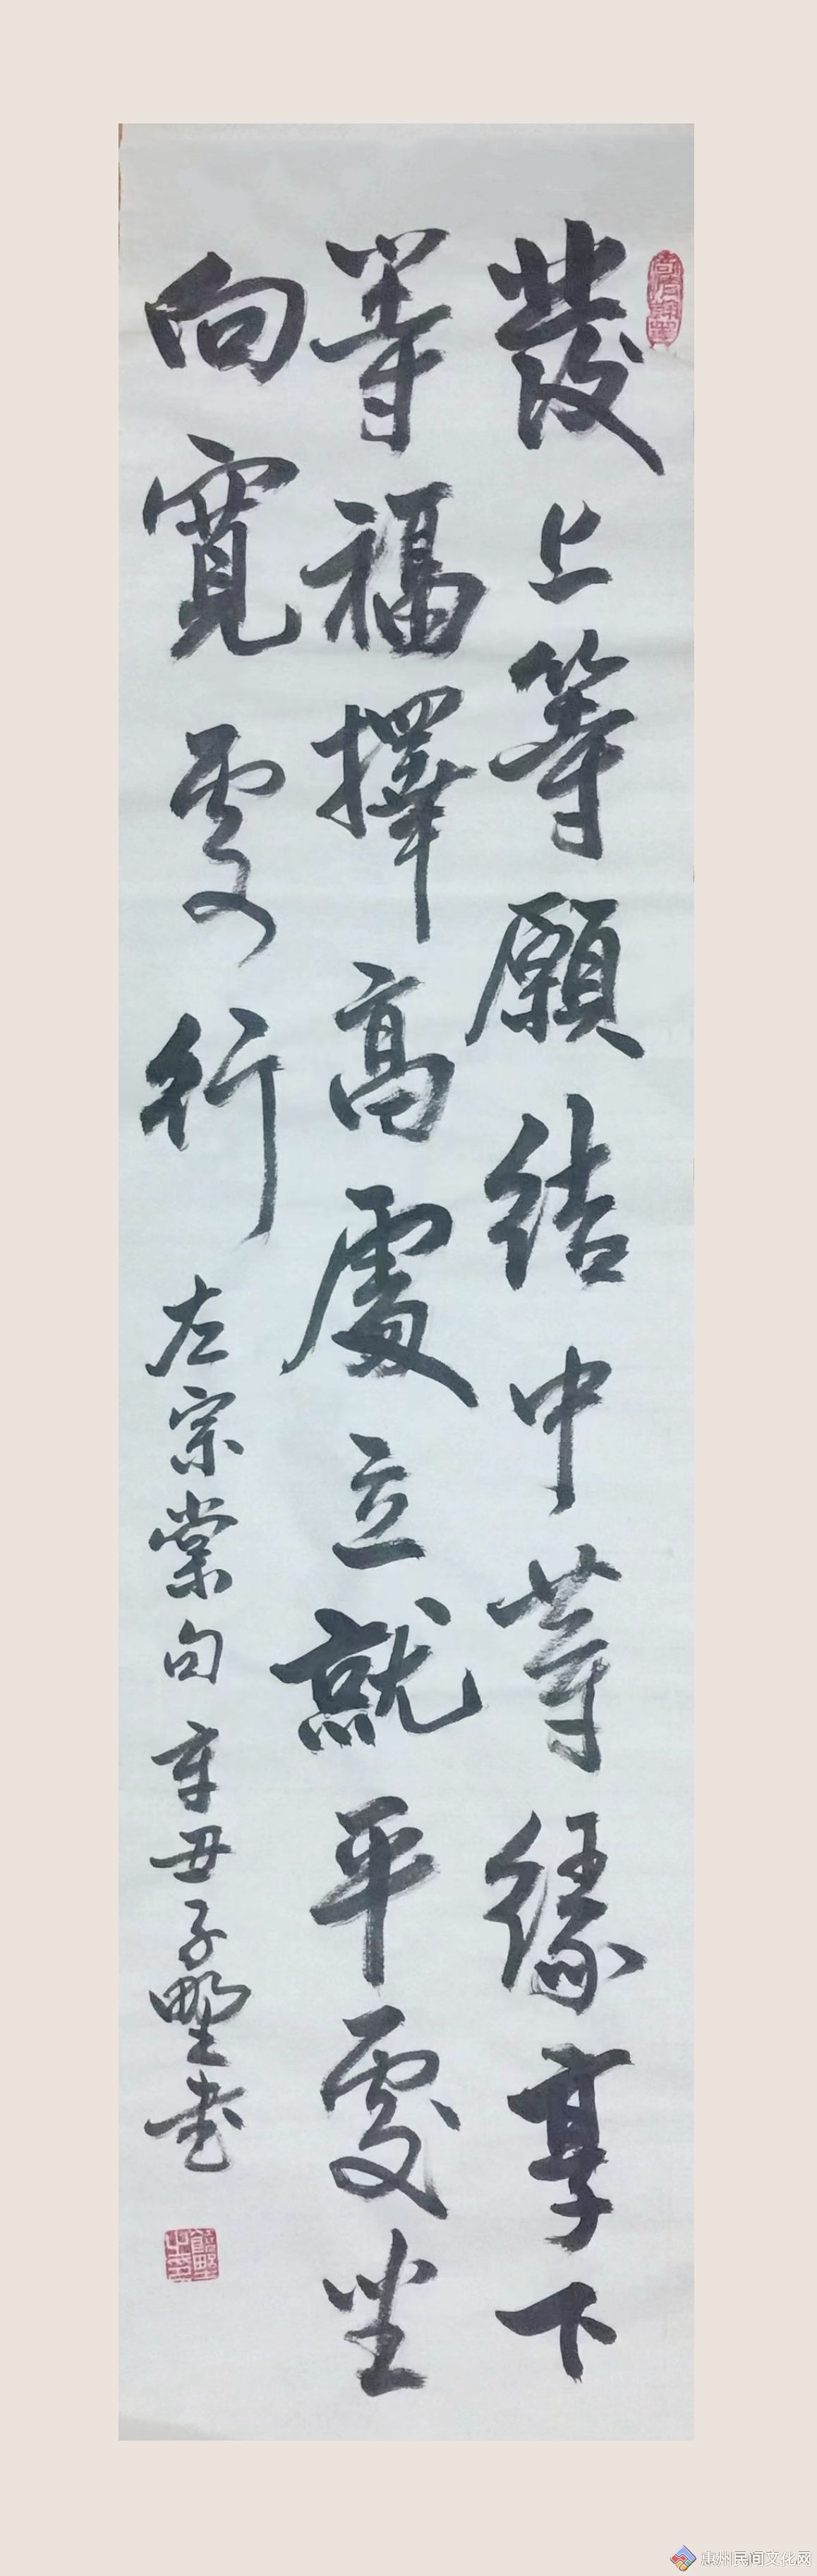 發上等願結中等緣享下
等福擇高處立就平處坐
向寬處行
左宗棠句 辛丑子墅书
惠州民间文化网